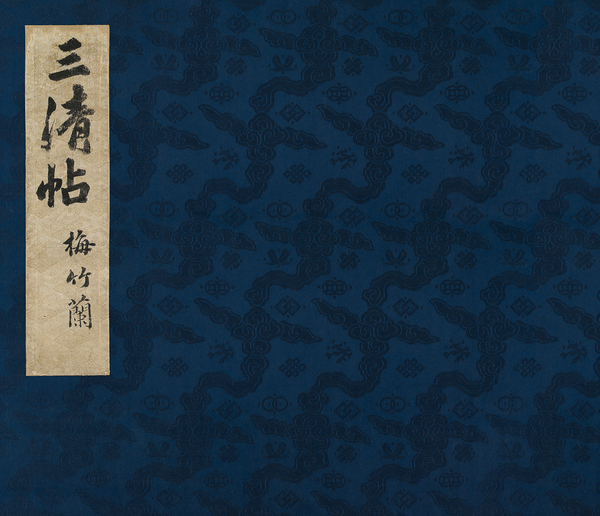 三清帖
梅竹蘭